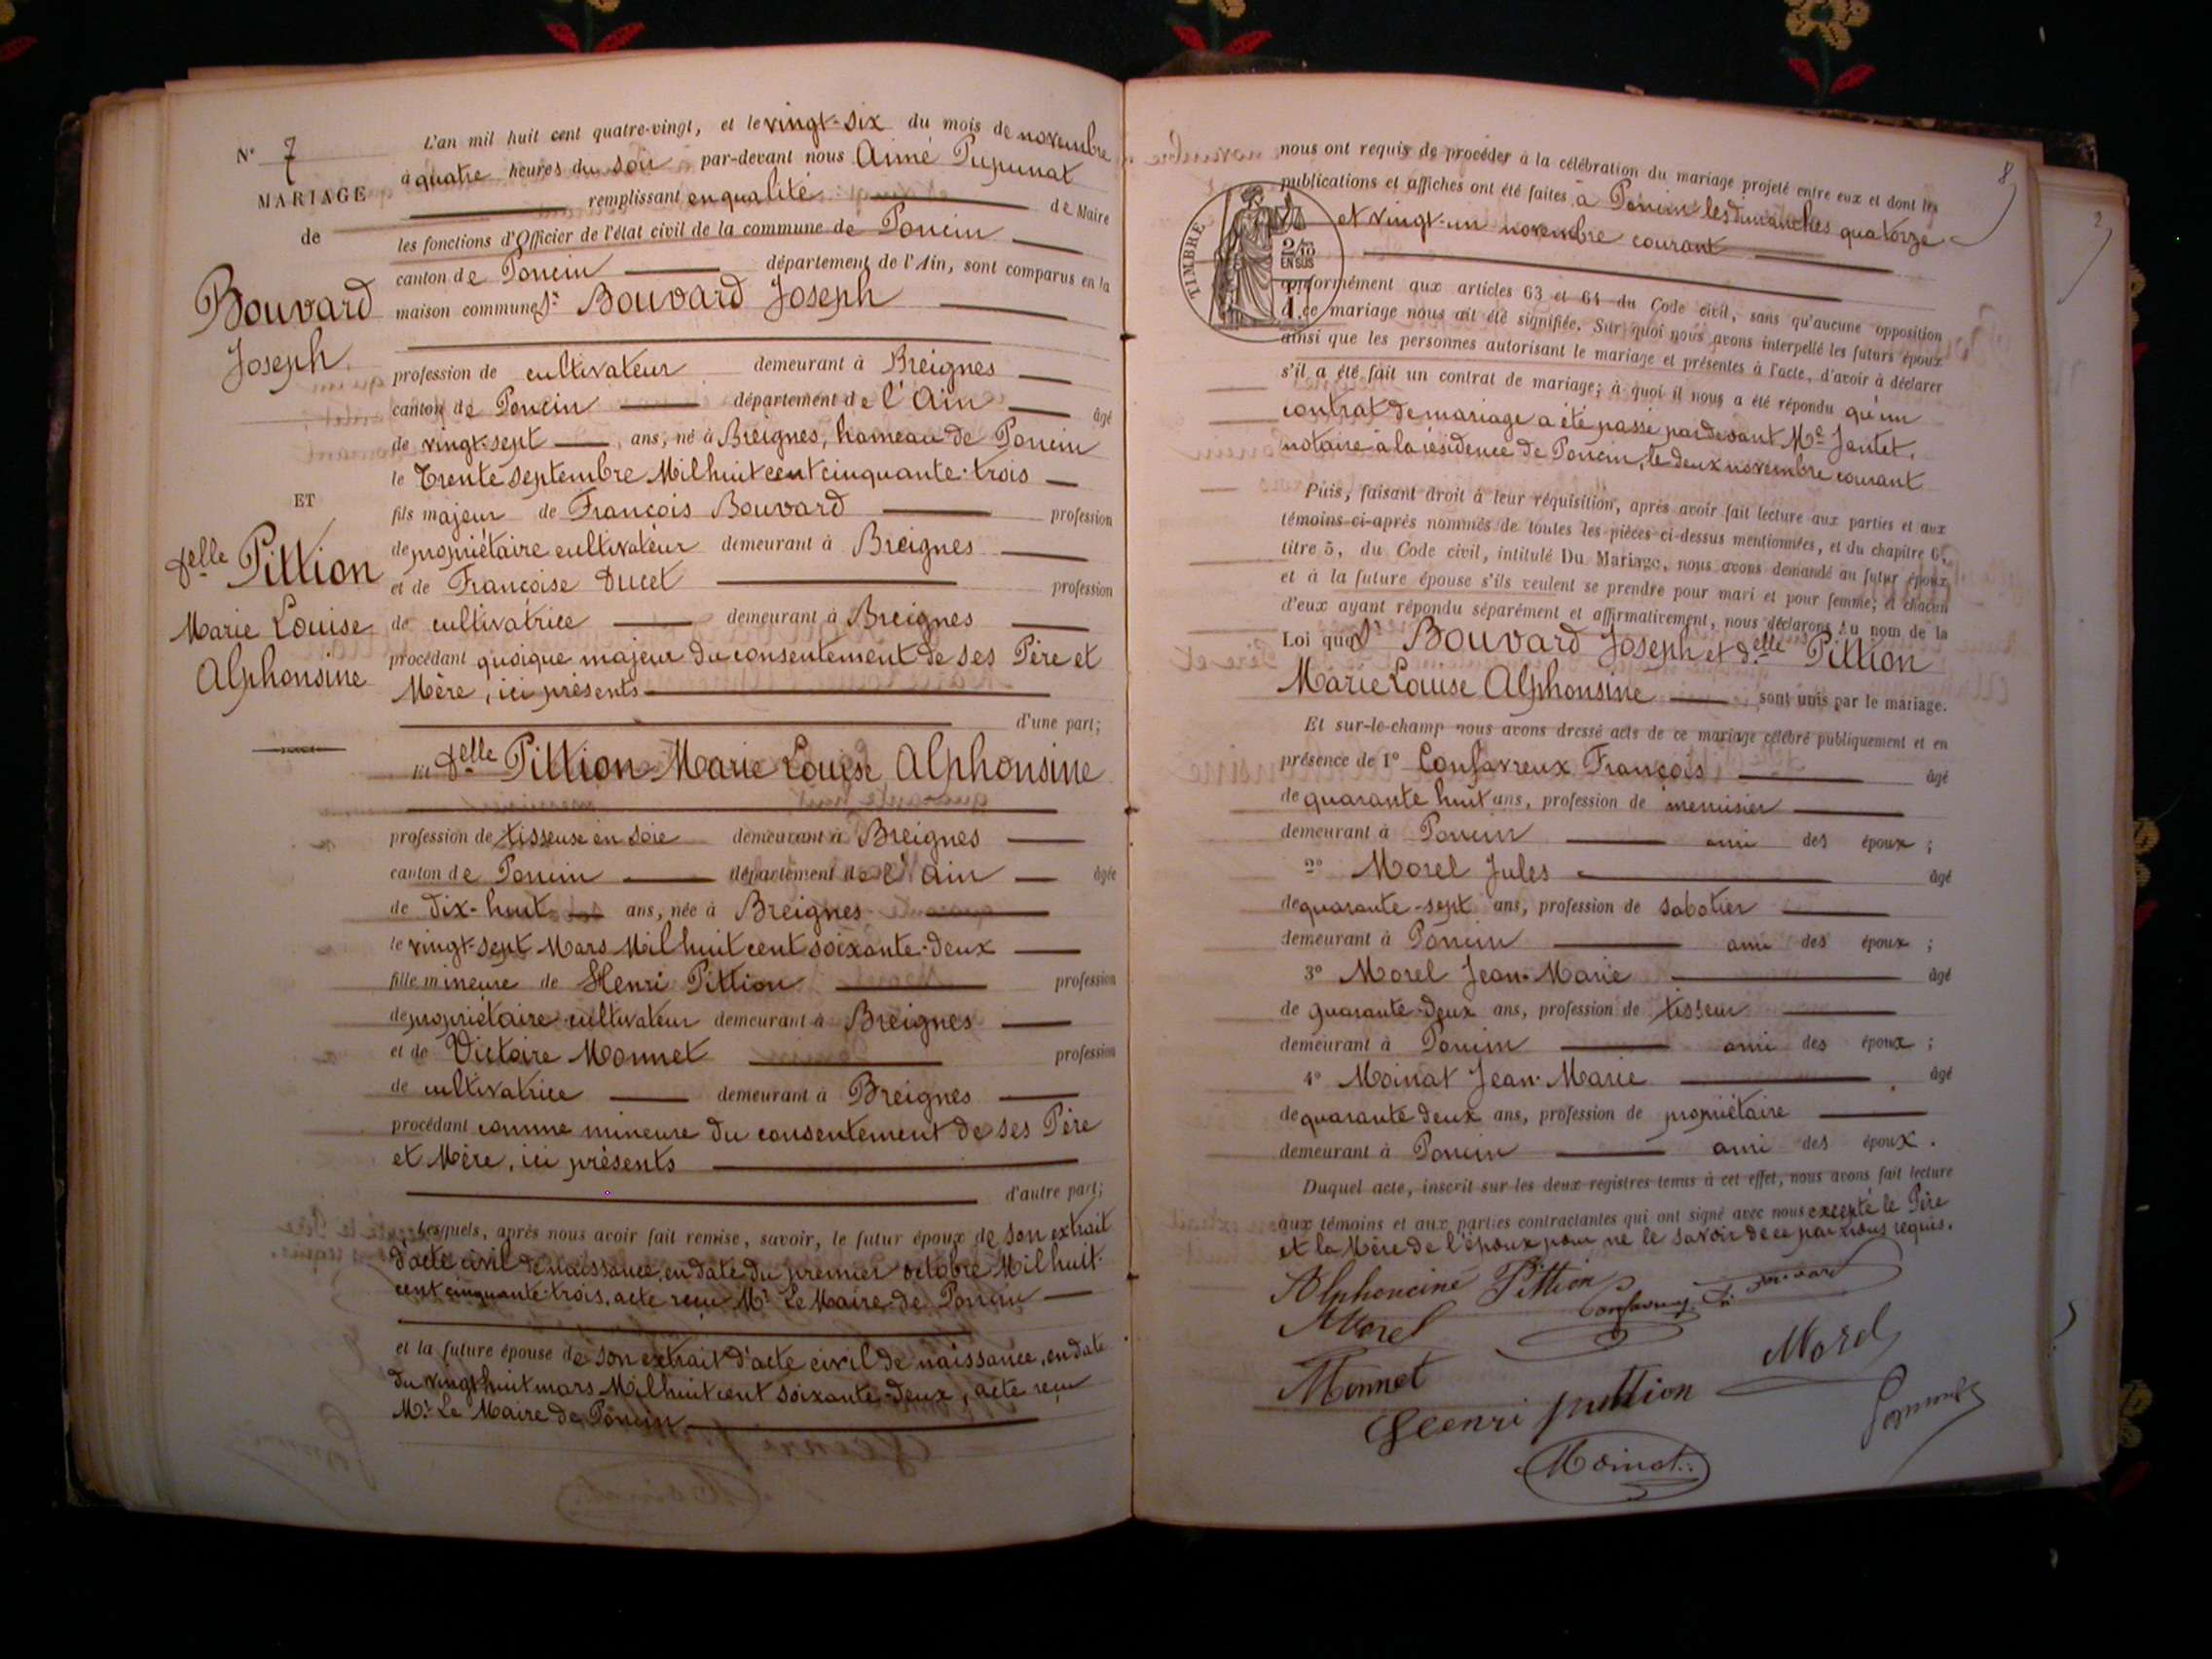 N° 7
MARIAGE
de
Bouvard
Joseph
ET
Delle Pittion
Marie Louise
Alphonsine
L'an mil huit cent quatre-vingt, et le vingt-six du mois de novembre
à quatre heures du soir par-devant nous Aimé Pupunat
remplissant en qualité de Maire
les fonctions d'Officier de l'état civil de la commune de Poncin
canton de Poncin département de l'Ain, sont comparus en la
maison commune Sr Bouvard Joseph
profession de cultivateur demeurant à Breignes
canton de Poncin département de l'Ain âgé
de vingt-sept ans, né à Breignes, hameau de Poncin
le Trente septembre Mil huit cent cinquante-trois
fils majeur de François Bouvard profession
de propriétaire cultivateur demeurant à Breignes
et de Françoise Ducet profession
de cultivatrice demeurant à Breignes
procédant quoique majeur du consentement de ses Père et
Mère, ici présents
d'une part;
Et Delle Pittion Marie Louise Alphonsine
profession de tisseuse en soie demeurant à Breignes
canton de Poncin département de l'Ain âgée
de dix-huit ans, née à Breignes
le vingt-sept Mars Mil huit cent soixante-deux
fille mineure de Henri Pittion profession
de propriétaire cultivateur demeurant à Breignes
et de Victoire Monnet profession
de cultivatrice demeurant à Breignes
procédant comme mineure du consentement de ses Père
et Mère, ici présents
d'autre part;
Lesquels, après nous avoir fait remise, savoir, le futur époux de son extrait
d'acte civil de naissance, en date du premier octobre Mil huit-
cent cinquante-trois, acte reçu Mr Le Maire de Poncin
et la future épouse de son extrait d'acte civil de naissance, en date
du vingt huit mars Mil huit cent soixante-deux, acte reçu
Mr Le Maire de Poncin
8
2
nous ont requis de procéder à la célébration du mariage projeté entre eux et dont les
publications et affiches ont été faites à Poncin les dimanches quatorze
et vingt-un novembre courant
TIMBRE
2/10
EN SUS
conformément aux articles 63 et 64 du Code civil, sans qu'aucune opposition
à ce mariage nous ait été signifiée. Sur quoi nous avons interpellé les futurs époux
ainsi que les personnes autorisant le mariage et présentes à l'acte, d'avoir à déclarer
s'il a été fait un contrat de mariage; à quoi il nous a été répondu qu'un
contrat de mariage a été passé pardevant Me Jantet,
notaire à la résidence de Poncin, le deux novembre courant
Puis, faisant droit à leur réquisition, après avoir fait lecture aux parties et aux
témoins ci-après nommés de toutes les pièces ci-dessus mentionnées, et du chapitre 6,
titre 5, du Code civil, intitulé Du Mariage, nous avons demandé au futur époux
et à la future épouse s'ils veulent se prendre pour mari et pour femme; et chacun
d'eux ayant répondu séparément et affirmativement, nous déclarons au nom de la
Loi que Sr Bouvard Joseph et delle Pittion
Marie Louise Alphonsine sont unis par le mariage.
Et sur-le-champ nous avons dressé acte de ce mariage célébré publiquement et en
présence de 1° Confavreux François âgé
de quarante huit ans, profession de menuisier
demeurant à Poncin ami des époux ;
2° Morel Jules âgé
de quarante-sept ans, profession de sabotier
demeurant à Poncin ami des époux ;
3° Morel Jean-Marie âgé
de quarante-deux ans, profession de tisseur
demeurant à Poncin ami des époux ;
4° Moinat Jean-Marie âgé
de quarante deux ans, profession de propriétaire
demeurant à Poncin ami des époux .
Duquel acte, inscrit sur les deux registres tenus à cet effet, nous avons fait lecture
aux témoins et aux parties contractantes qui ont signé avec nous excepté le Père
et la Mère de l'époux pour ne le savoir de ce par nous requis.
Alphoncine Pittion
Morel
Monnet
Morel
Henri pittion
Moinat